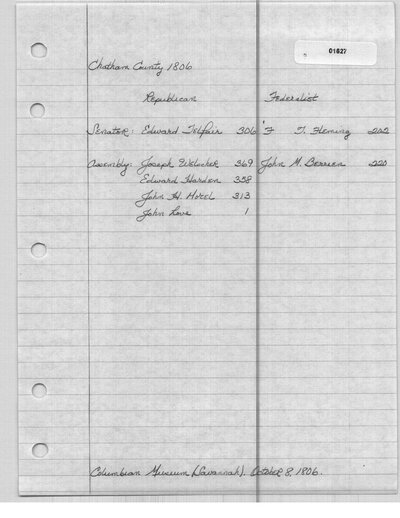 01827
Chatham County 1806
Republican Federalist
Senator: Edward Telfair 306 F T. Fleming 202
Assembly: Joseph 369 John M. Berrien 220
Edward Harden 358
John H. Morel 313
John Love 1
Columbian Museum (Savannah). October 8, 1806.